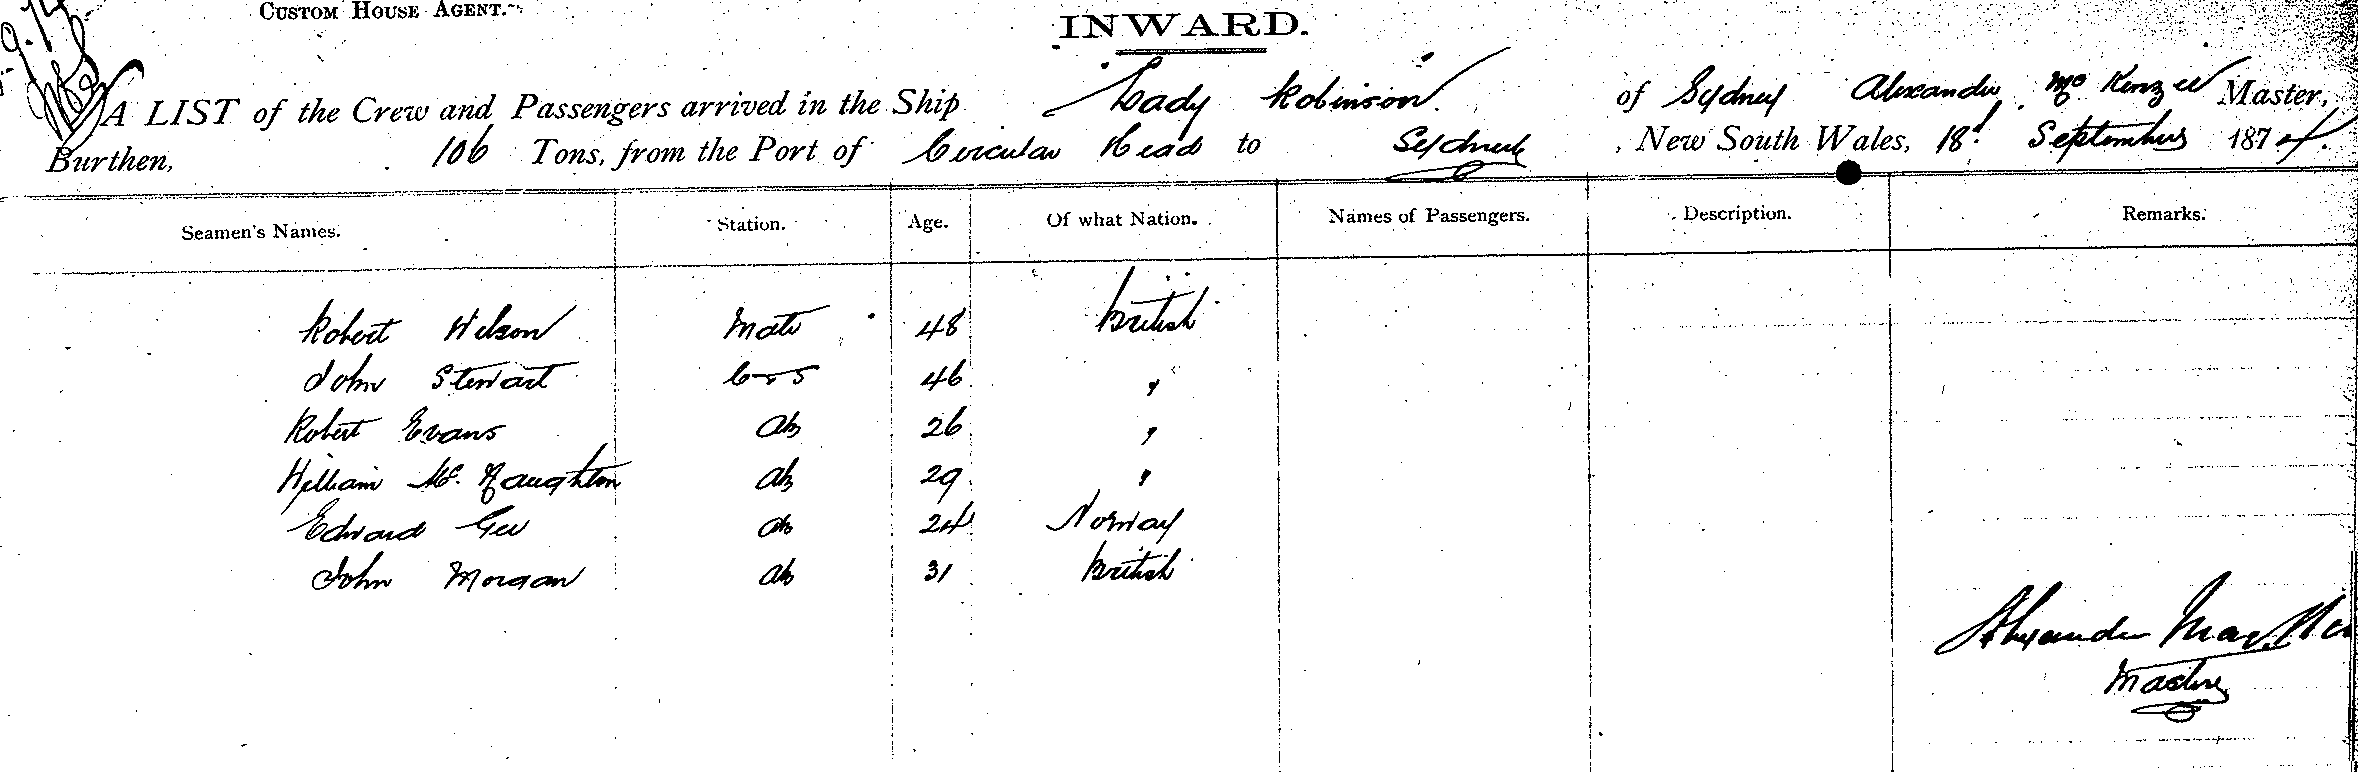 CUSTOM HOUSE AGENT.
INWARD.
A LIST of the Crew and Passengers arrived in the Ship Lady Robinson of Sydney Alexander Mc Kenzie Master,
Burthen, 106 Tons, from the Port of Circular Head to Sydney , New South Wales, 18th September 1874.
Seamen's Names. Station. Age. Of what Nation. Names of Passengers. Description. Remarks.
Robert Wilson Mate 48 British
John Stewart 46 "
Robert Evans Ab 26 "
William Mc. Naughton Ab 29 "
Edward Gee Ab 24 Norway
John Morgan Ab 31 British
Alexander
Master